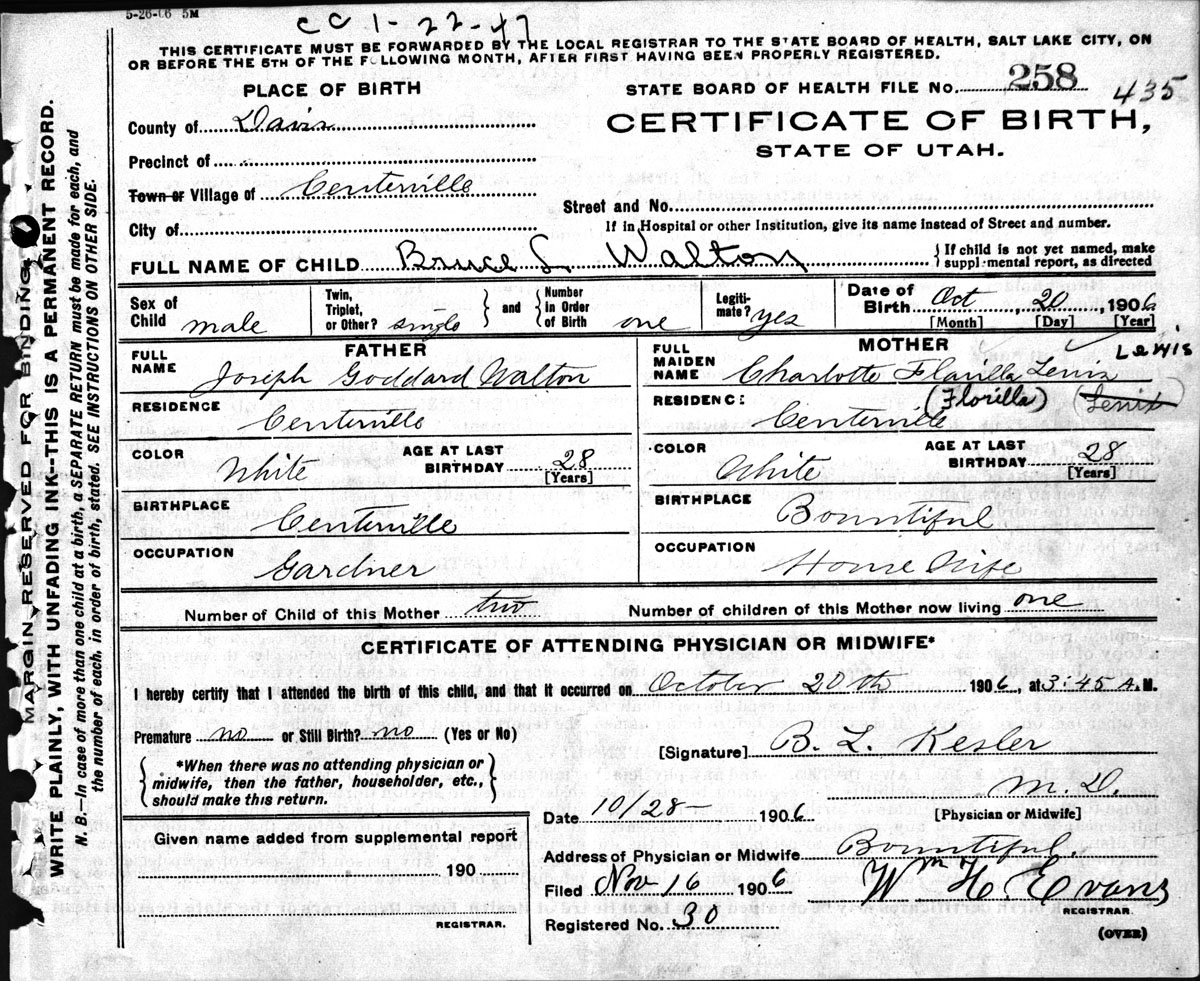 5-26-06 5M
CC 1-22-47
THIS CERTIFICATE MUST BE FORWARDED BY THE LOCAL REGISTRAR TO THE STATE BOARD OF HEALTH, SALT LAKE CITY, ON
OR BEFORE THE 5TH OF THE FOLLOWING MONTH, AFTER FIRST HAVING BEEN PROPERLY REGISTERED.
PLACE OF BIRTH
STATE BOARD OF HEALTH FILE No. 258 435
County of Davis
CERTIFICATE OF BIRTH,
STATE OF UTAH.
Precinct of
Town or Village of Centerville
Street and No.
City of
If in Hospital or other Institution, give its name instead of Street and number.
FULL NAME OF CHILD Bruce L. Walton
{If child is not yet named, make
supplemental report, as directed
Sex of Child male
Twin, Triplet, or Other? single } and { Number in Order of Birth one
Legitimate? yes
Date of Birth Oct 20, 1906
[Month] [Day] [Year]
FATHER
FULL NAME Joseph Goddard Walton
RESIDENCE Centerville
COLOR White
AGE AT LAST BIRTHDAY 28
[Years]
BIRTHPLACE Centerville
OCCUPATION Gardner
MOTHER
Lewis
FULL MAIDEN NAME Charlotte Flavilla Lewis
(Florilla)
RESIDENCE Centerville
COLOR White
AGE AT LAST BIRTHDAY 28
[Years]
BIRTHPLACE Bountiful
OCCUPATION House Wife
Number of Child of this Mother two
Number of children of this Mother now living one
CERTIFICATE OF ATTENDING PHYSICIAN OR MIDWIFE*
I hereby certify that I attended the birth of this child, and that it occurred on October 20th 1906, at 3:45 A.M.
Premature no or Still Birth? no (Yes or No)
[Signature] B. L. Kesler
M.D.
[Physician or Midwife]
{ *When there was no attending physician or
midwife, then the father, householder, etc.,
should make this return. }
Date 10/28- 1906
Given name added from supplemental report
190
REGISTRAR.
Address of Physician or Midwife Bountiful.
Filed Nov 16 1906
Wm H Evans
REGISTRAR.
Registered No. 30
(OVER)
MARGIN RESERVED FOR BINDING
WRITE PLAINLY, WITH UNFADING INK--THIS IS A PERMANENT RECORD.
N. B.--In case of more than one child at a birth, a SEPARATE RETURN must be made for each, and
the number of each, in order of birth, stated. SEE INSTRUCTIONS ON OTHER SIDE.